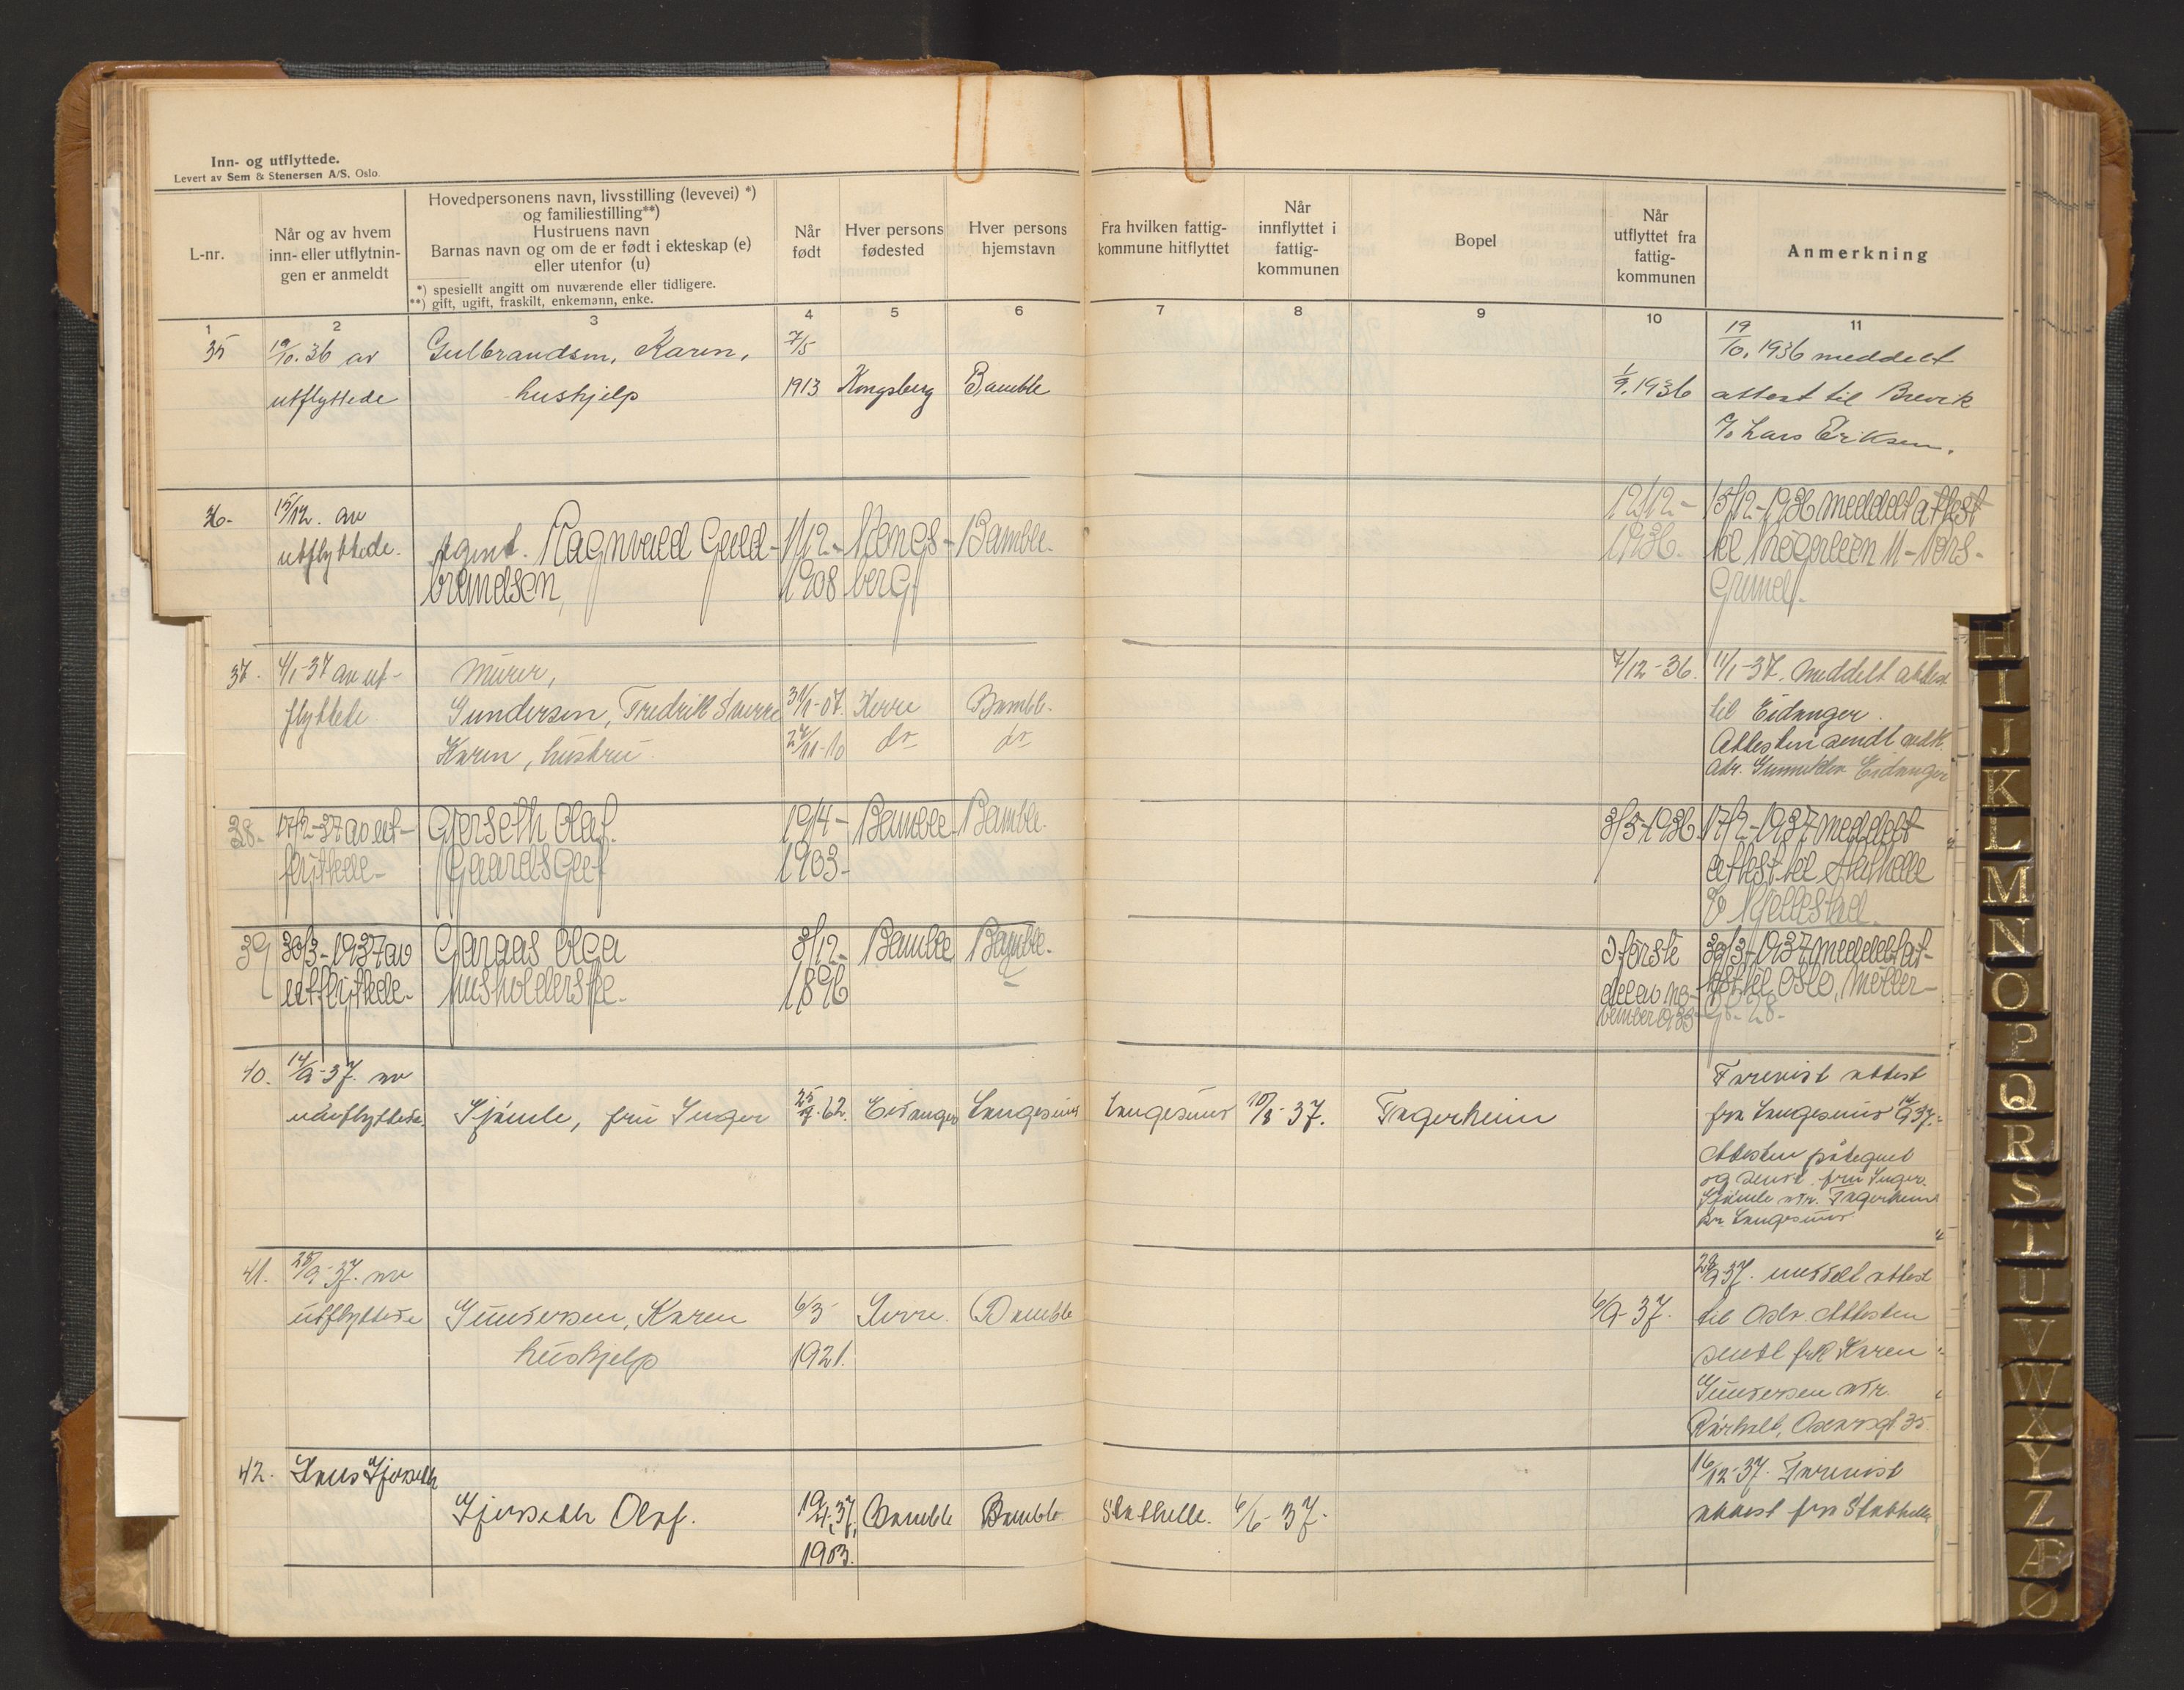 Inn- og utflyttede.
Levert av Sem & Stenersen A/S, Oslo.
L-nr.
Når og av hvem
inn- eller utflytnin-
gen er anmeldt
Hovedpersonens navn, livsstilling (levevei) *)
og familiestilling**)
Hustruens navn
Barnas navn og om de er født i ekteskap (e)
eller utenfor (u)
*) spesiellt angitt om nuværende eller tidligere.
**) gift, ugift, fraskilt, enkemann, enke.
Når
født
Hver persons
fødested
Hver persons
hjemstavn
Fra hvilken fattig-
kommune hitflyttet
Når
innflyttet i
fattig-
kommunen
Bopel
Når
utflyttet fra
fattig-
kommunen
Anmerkning
1 2 3 4 5 6 7 8 9 10 11
35 19/10.36 av Gulbrandsen, Karen, 7/5 19/10.1936 meddelt
utflyttede hushjelp 1913 Kongsberg Bamble 1/9.1936 attest til Brevik
c/o Lars Eriksen.
36- 15/12. av 12/12- 15/12-1936 meddelt attest
utflyttede. Agent. Ragnvald Guld- 1/12- Kongs- Bamble. 1936. til 11-Pors-
brandsen, 1908 berg grund.
37. 4/1-37 av ut- Murer, 7/12-36. 11/1-37. Meddelt attest
flyttede Gundersen, Fredrik Sverre 31/1-07. Herre Bamble. til Eidanger.
Karen, hustru 27/11-10 do do Attesten sendt vedk.
adr. Eidanger
38. 17/2-37 av ut- Gjerseth Olaf. 19/4- Bamble Bamble. 3/5-1936. 17/2-1937 meddelt
flyttede- Gaardsgut 1903- attest til Stathelle
c/o Kjellestad.
39 30/3-1937 av Garaas Olga 3/12- Bamble Bamble. I første 30/3-1937 meddelt at-
utflyttede- husholderske- 1896 del av no- test til Oslo, Møller-
vember 1935- gt-28-
40. 14/9-37. av Farevist attest
utflyttede Gjømle, fru Inger 25/9-62. Eidanger Langesund Langesund 10/8-37. Fagerheim fra Langesund 14/9 37.
Attesten påtegnet
og sendt fru Inger
Gjømle adr. Fagerheim
pr. Langesund
41. 28/9-37. av 28/9-37. meddelt attest
utflyttede Gundersen, Karen 6/3 Herre. Bamble 6/9-37. til Oslo. Attesten
hushjelp 1921. sendt frk Karen
Gundersen adr.
Oscarsgt 35
42. Hans Gjerseth 16/12-37. Farevist
Gjerseth Olaf. 19/4.37. Bamble Bamble Stathelle. 6/6-37. attest fra Stathelle
1903.
H
I
J
K
L
M
N
O
P
Q
R
S
T
U
V
W
X
Y
Z
Æ
Ø